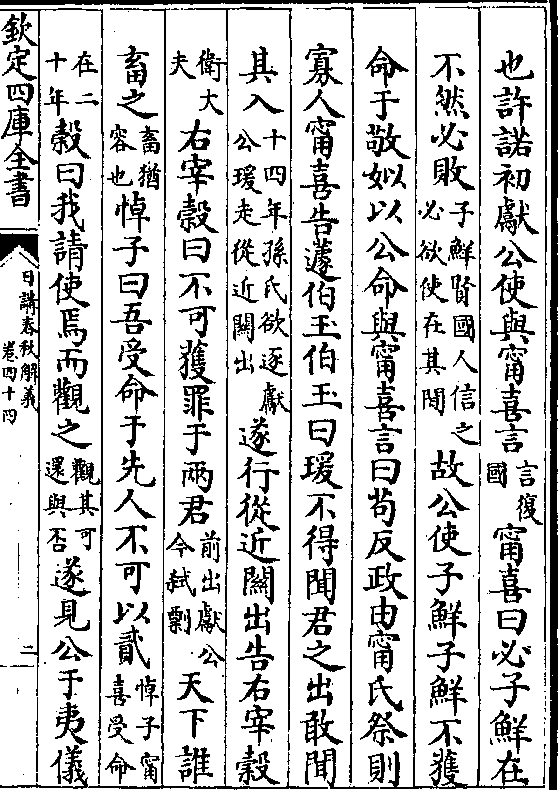 也許諾初獻公使與甯喜言言復國甯喜曰必子鮮在
不然必敗子鮮賢國人信之必欲使在其間故公使子鮮子鮮不獲
命于敬姒以公命與甯喜言曰苟反政由甯氏祭則
寡人甯喜告蘧伯玉伯玉曰瑗不得聞君之出敢聞
其入十四年孫氏欲逐獻公瑗走從近關出遂行從近關出告右宰穀
衛大夫右宰穀曰不可獲罪于兩君前出獻公今弑剽天下誰
畜之畜猶容也悼子曰吾受命于先人不可以貳悼子甯喜受命
在二十年穀曰我請使焉而觀之觀其可還與否遂見公于夷儀
欽定四庫全書
日講春秋解義
卷四十四
二